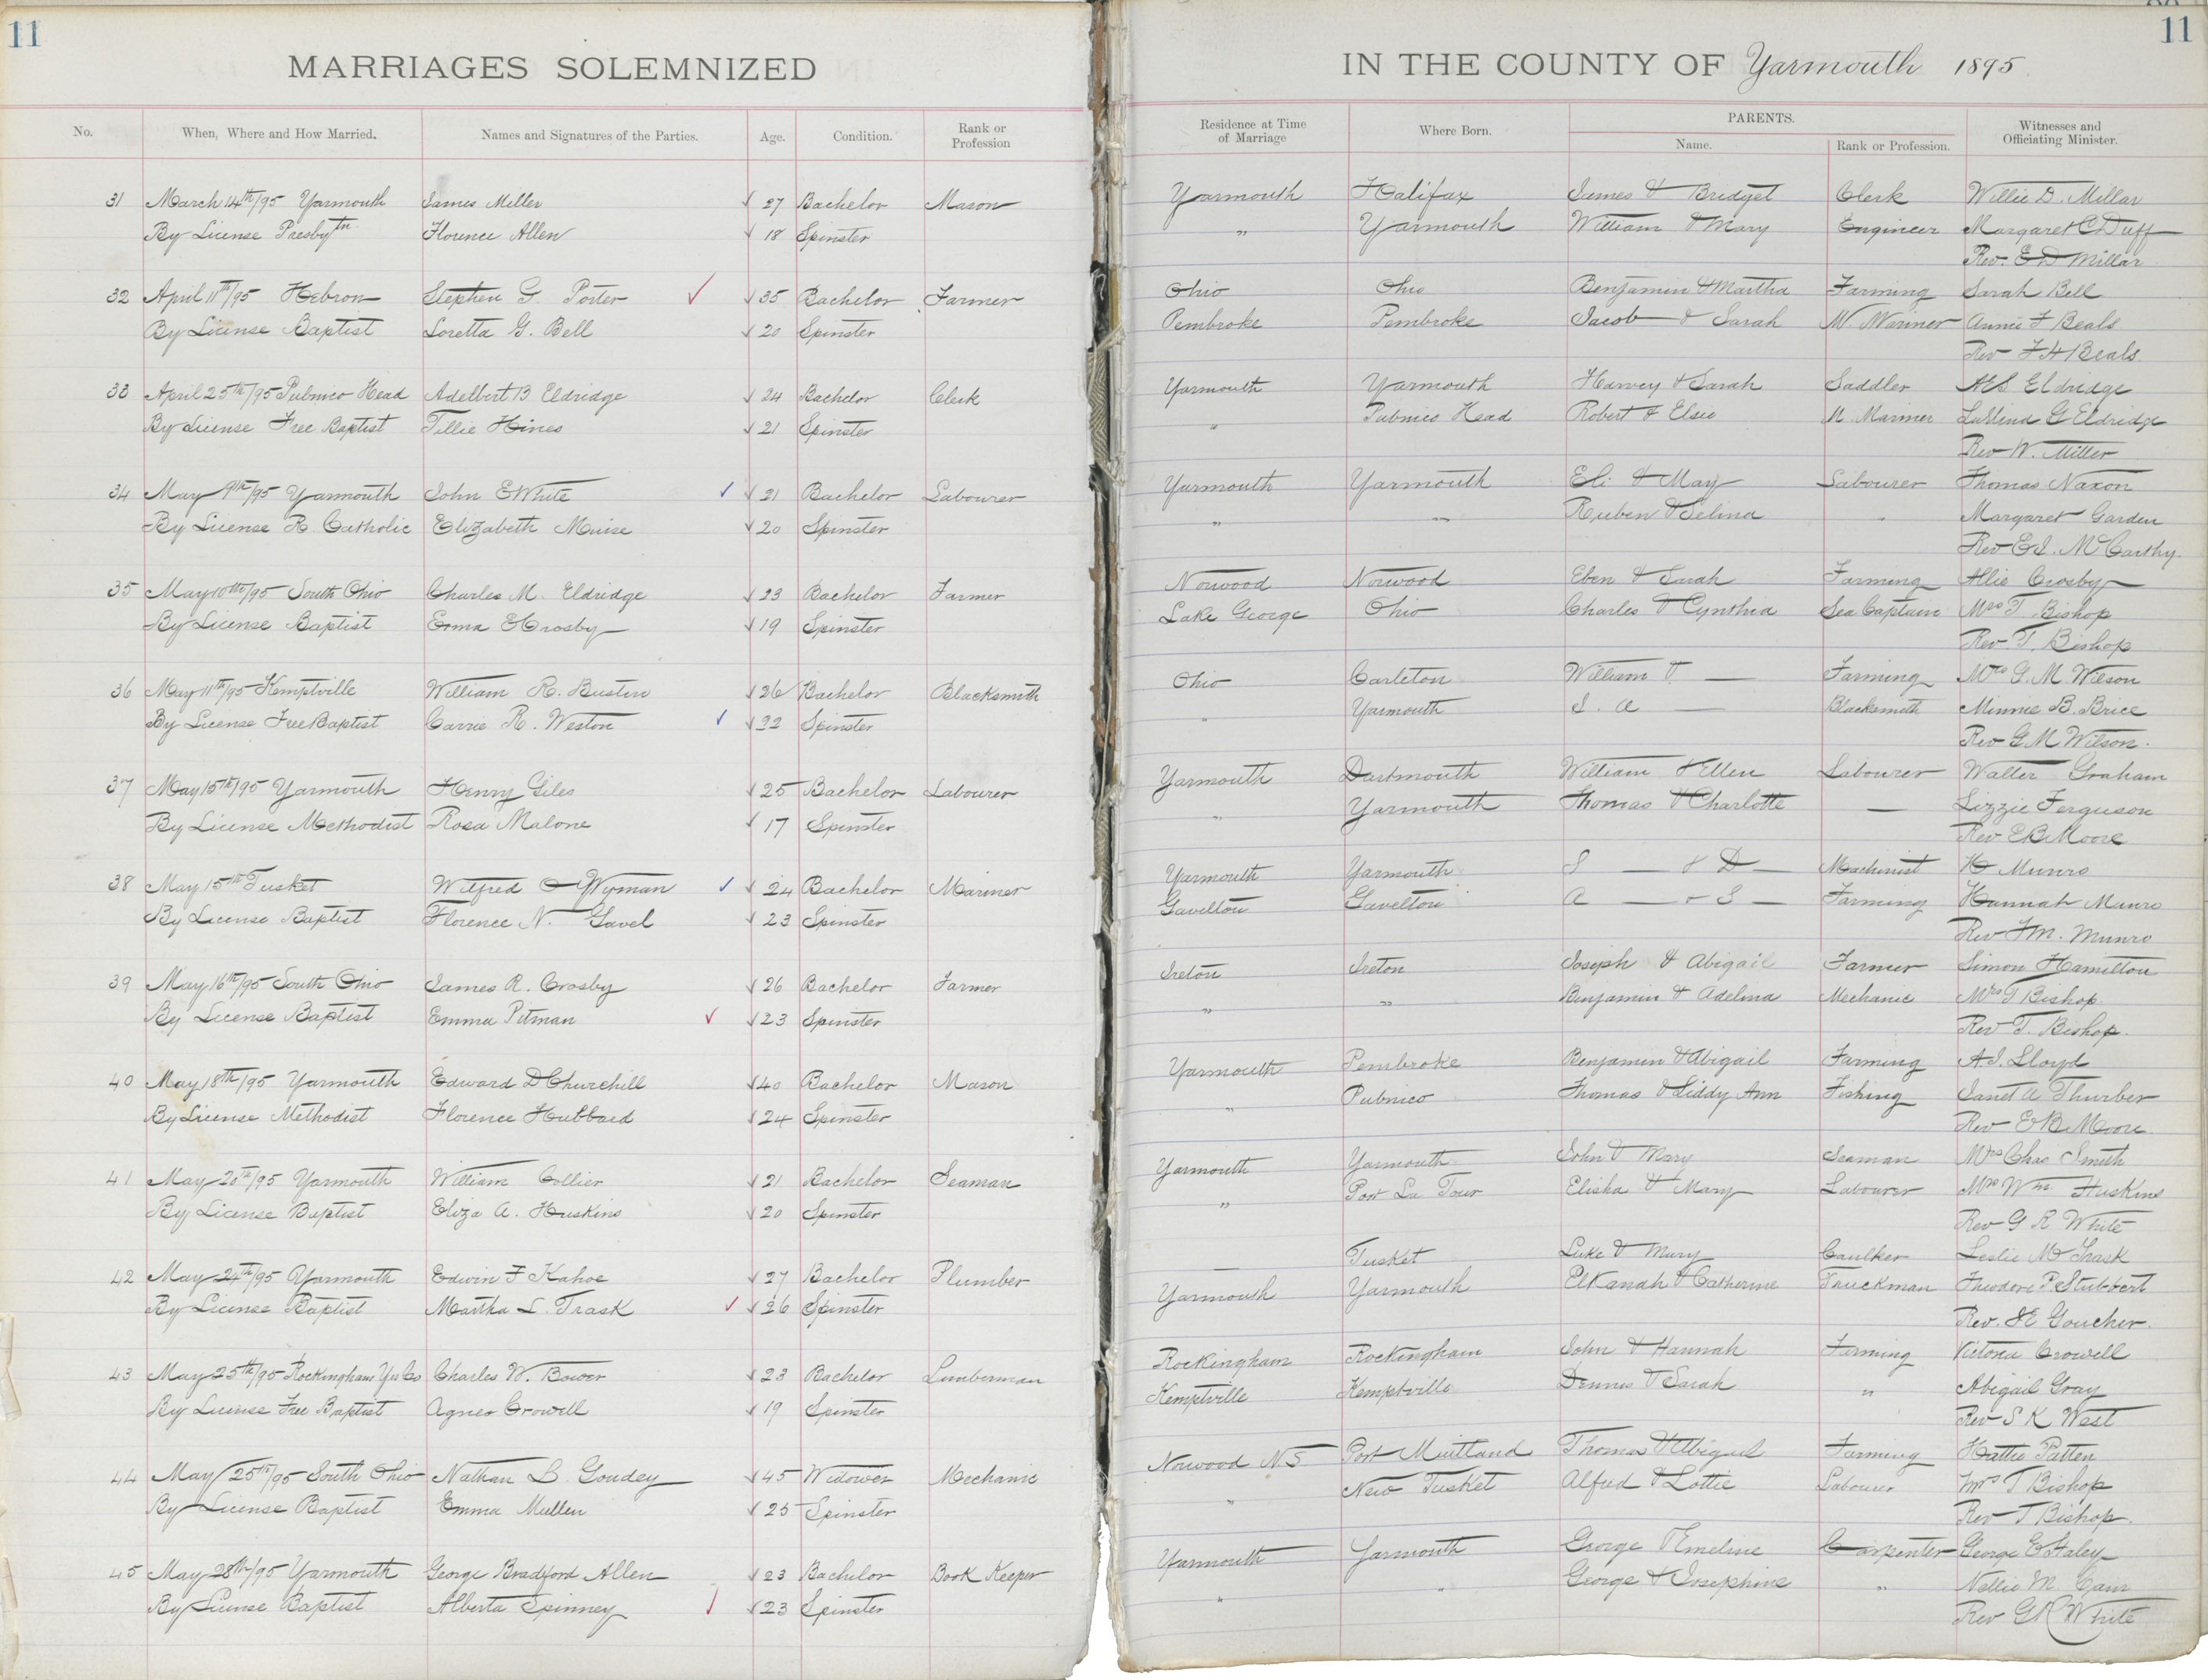 11
MARRIAGES SOLEMNIZED
No. When, Where and How Married. Names and Signatures of the Parties. Age. Condition. Rank or Profession
31 March 14th/95 Yarmouth James Miller 27 Bachelor Mason
By License Presbytn. Florence Allen 18 Spinster
32 April 11th/95 Hebron Stephen G. Porter 35 Bachelor Farmer
By License Baptist Loretta G. Bell 20 Spinster
33 April 25th/95 Pubnico Head Adelbert B Eldridge 24 Bachelor Clerk
By License Free Baptist Tillie Hines 21 Spinster
34 May 9th/95 Yarmouth John E White 21 Bachelor Labourer
By License R. Catholic Elizabeth Muise 20 Spinster
35 May 10th/95 South Ohio Charles M. Eldridge 23 Bachelor Farmer
By License Baptist Erma E Crosby 19 Spinster
36 May 11th/95 Kemptville William R. Bustin 26 Bachelor Blacksmith
By License Free Baptist Carrie R. Weston 22 Spinster
37 May 15th/95 Yarmouth Henry Giles 25 Bachelor Labourer
By License Methodist Rosa Malone 17 Spinster
38 May 15th Tusket Wilfred O Wyman 24 Bachelor Mariner
By License Baptist Florence N. Gavel 23 Spinster
39 May 16th/95 South Ohio James R. Crosby 26 Bachelor Farmer
By License Baptist Emma Pitman 23 Spinster
40 May 18th/95 Yarmouth Edward D Churchill 40 Bachelor Mason
By License Methodist Florence Hubbard 24 Spinster
41 May 20th/95 Yarmouth William Collier 21 Bachelor Seaman
By License Baptist Eliza A. Huskins 20 Spinster
42 May 24th/95 Yarmouth Edwin F Kahoe 27 Bachelor Plumber
By License Baptist Martha L. Trask 26 Spinster
43 May 25th/95 Rockingham Yar Co Charles W. Bower 23 Bachelor Lumberman
By License Free Baptist Agnes Crowell 19 Spinster
44 May 25th/95 South Ohio Nathan B. Goudey 45 Widower Mechanic
By License Baptist Emma Mullen 25 Spinster
45 May 28th/95 Yarmouth George Bradford Allen 23 Bachelor Book Keeper
By License Baptist Alberta Spinney 23 Spinster
11
IN THE COUNTY OF Yarmouth 1895
Residence at Time of Marriage Where Born. PARENTS. Name. Rank or Profession. Witnesses and Officiating Minister.
Yarmouth Halifax James & Bridget Clerk Willie D. Millar
" Yarmouth William & Mary Engineer Margaret C Duff
Rev. E D Millar
Ohio Ohio Benjamin & Martha Farming Sarah Bell
Pembroke Pembroke Jacob & Sarah M. Mariner Annie F Beals
Rev F H Beals
Yarmouth Yarmouth Harvey & Sarah Saddler Eldridge
" Pubnico Head Robert & Elsie M. Mariner G Eldridge
Rev W. Miller
Yarmouth Yarmouth Eli & May Labourer Thomas Naxon
" " Reuben & Selina " Margaret Garden
Rev E J. McCarthy.
Norwood Norwood Eben & Sarah Farming Allie Crosby
Lake George Ohio Charles & Cynthia Sea Captain Mrs T Bishop
Rev T. Bishop
Ohio Carleton William & — Farming Mrs G. M. Wilson
" Yarmouth S. A — Blacksmith Minnie B. Brice
Rev G M Wilson.
Yarmouth Dartmouth William & Ellen Labourer Walter Graham
" Yarmouth Thomas & Charlotte — Lizzie Ferguson
Rev E B Moore
Yarmouth Yarmouth S — & D — Machinist H Munro
Gavelton Gavelton A — & S — Farming Hannah Munro
Rev F M. Munro
Ireton Ireton Joseph & Abigail Farmer Simon Hamilton
" " Benjamin & Adelina Mechanic Mrs T Bishop
Rev T. Bishop.
Yarmouth Pembroke Benjamin & Abigail Farming A. J. Lloyd
" Pubnico Thomas & Liddy Ann Fishing Janet A Thurber
Rev E B Moore.
Yarmouth Yarmouth John & Mary Seaman Mrs Chas Smith
" Port La Tour Elisha & Mary Labourer Mrs Wm. Huskins
Rev G R White
— Tusket Luke & Mary Caulker Leslie M Trask
Yarmouth Yarmouth Elkanah & Catherine Truckman Theodore P. Stubbert
Rev. J E Goucher.
Rockingham Rockingham John & Hannah Farming Victoria Crowell
Kemptville Kemptville Dennis & Sarah " Abigail Gray
Rev S K West
Norwood N.S Port Maitland Thomas & Abigail Farming Hattie Patten
" New Tusket Alfred & Lottie Labourer Mrs T Bishop
Rev T Bishop.
Yarmouth Yarmouth George & Emeline Carpenter George E Haley
" " George & Josephine " Nellie M. Cain
Rev G R White